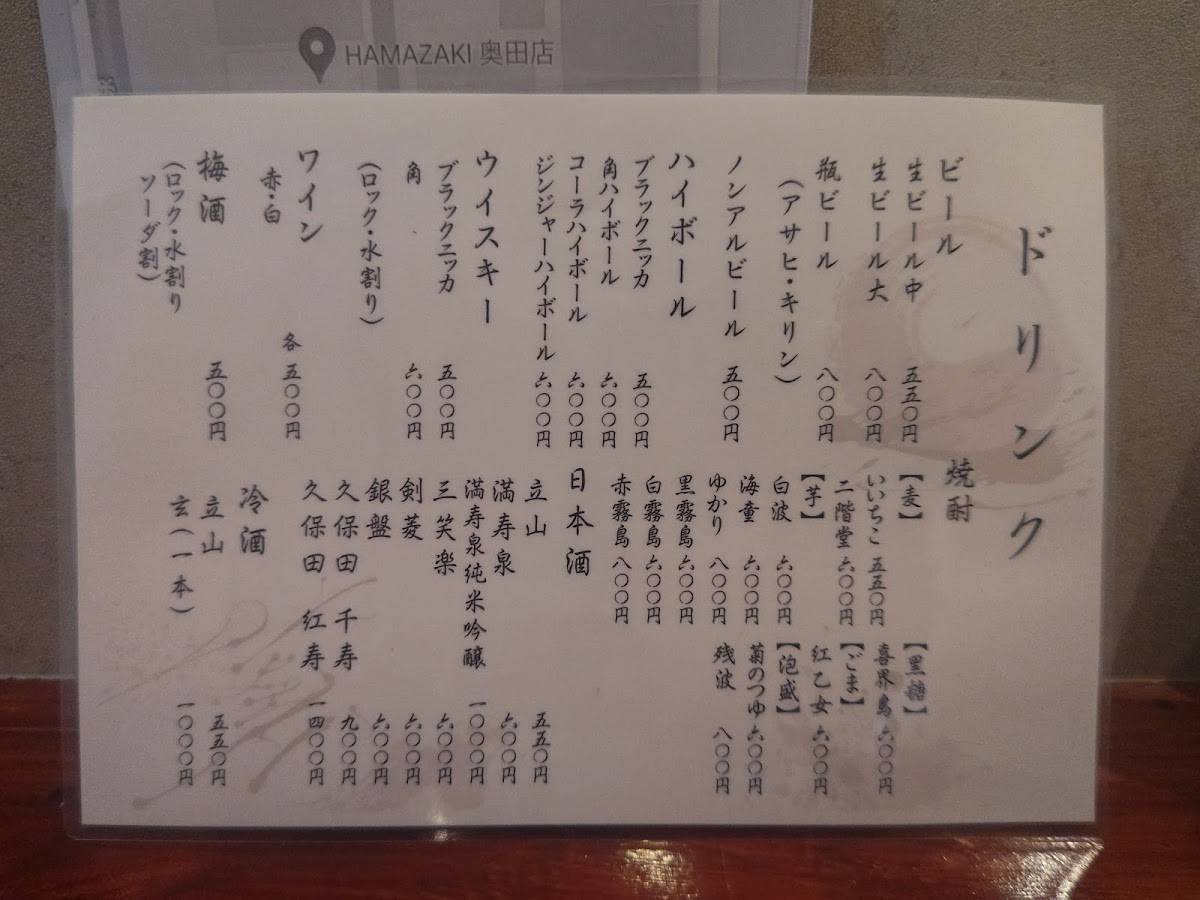 HAMAZAKI 奥田店
ドリンク
ビール
生ビール中 五五〇円
生ビール大 八〇〇円
瓶ビール 八〇〇円
（アサヒ・キリン）
ノンアルビール 五〇〇円
ハイボール
ブラックニッカ 五〇〇円
角ハイボール 六〇〇円
コーラハイボール 六〇〇円
ジンジャーハイボール 六〇〇円
ウイスキー
ブラックニッカ 五〇〇円
角 六〇〇円
（ロック・水割り）
ワイン
赤・白 各五〇〇円
梅酒 五〇〇円
（ロック・水割り
ソーダ割）
焼酎
【麦】
いいちこ 五五〇円
二階堂 六〇〇円
【芋】
白波 六〇〇円
海童 六〇〇円
ゆかり 八〇〇円
黒霧島 六〇〇円
白霧島 六〇〇円
赤霧島 八〇〇円
【黒糖】
喜界島 六〇〇円
【ごま】
紅乙女 六〇〇円
【泡盛】
菊のつゆ 六〇〇円
残波 八〇〇円
日本酒
立山 五五〇円
満寿泉 六〇〇円
満寿泉純米吟醸 一〇〇〇円
三笑楽 六〇〇円
剣菱 六〇〇円
銀盤 六〇〇円
久保田 千寿 九〇〇円
久保田 紅寿 一四〇〇円
冷酒
立山 五五〇円
玄（一本） 一〇〇〇円